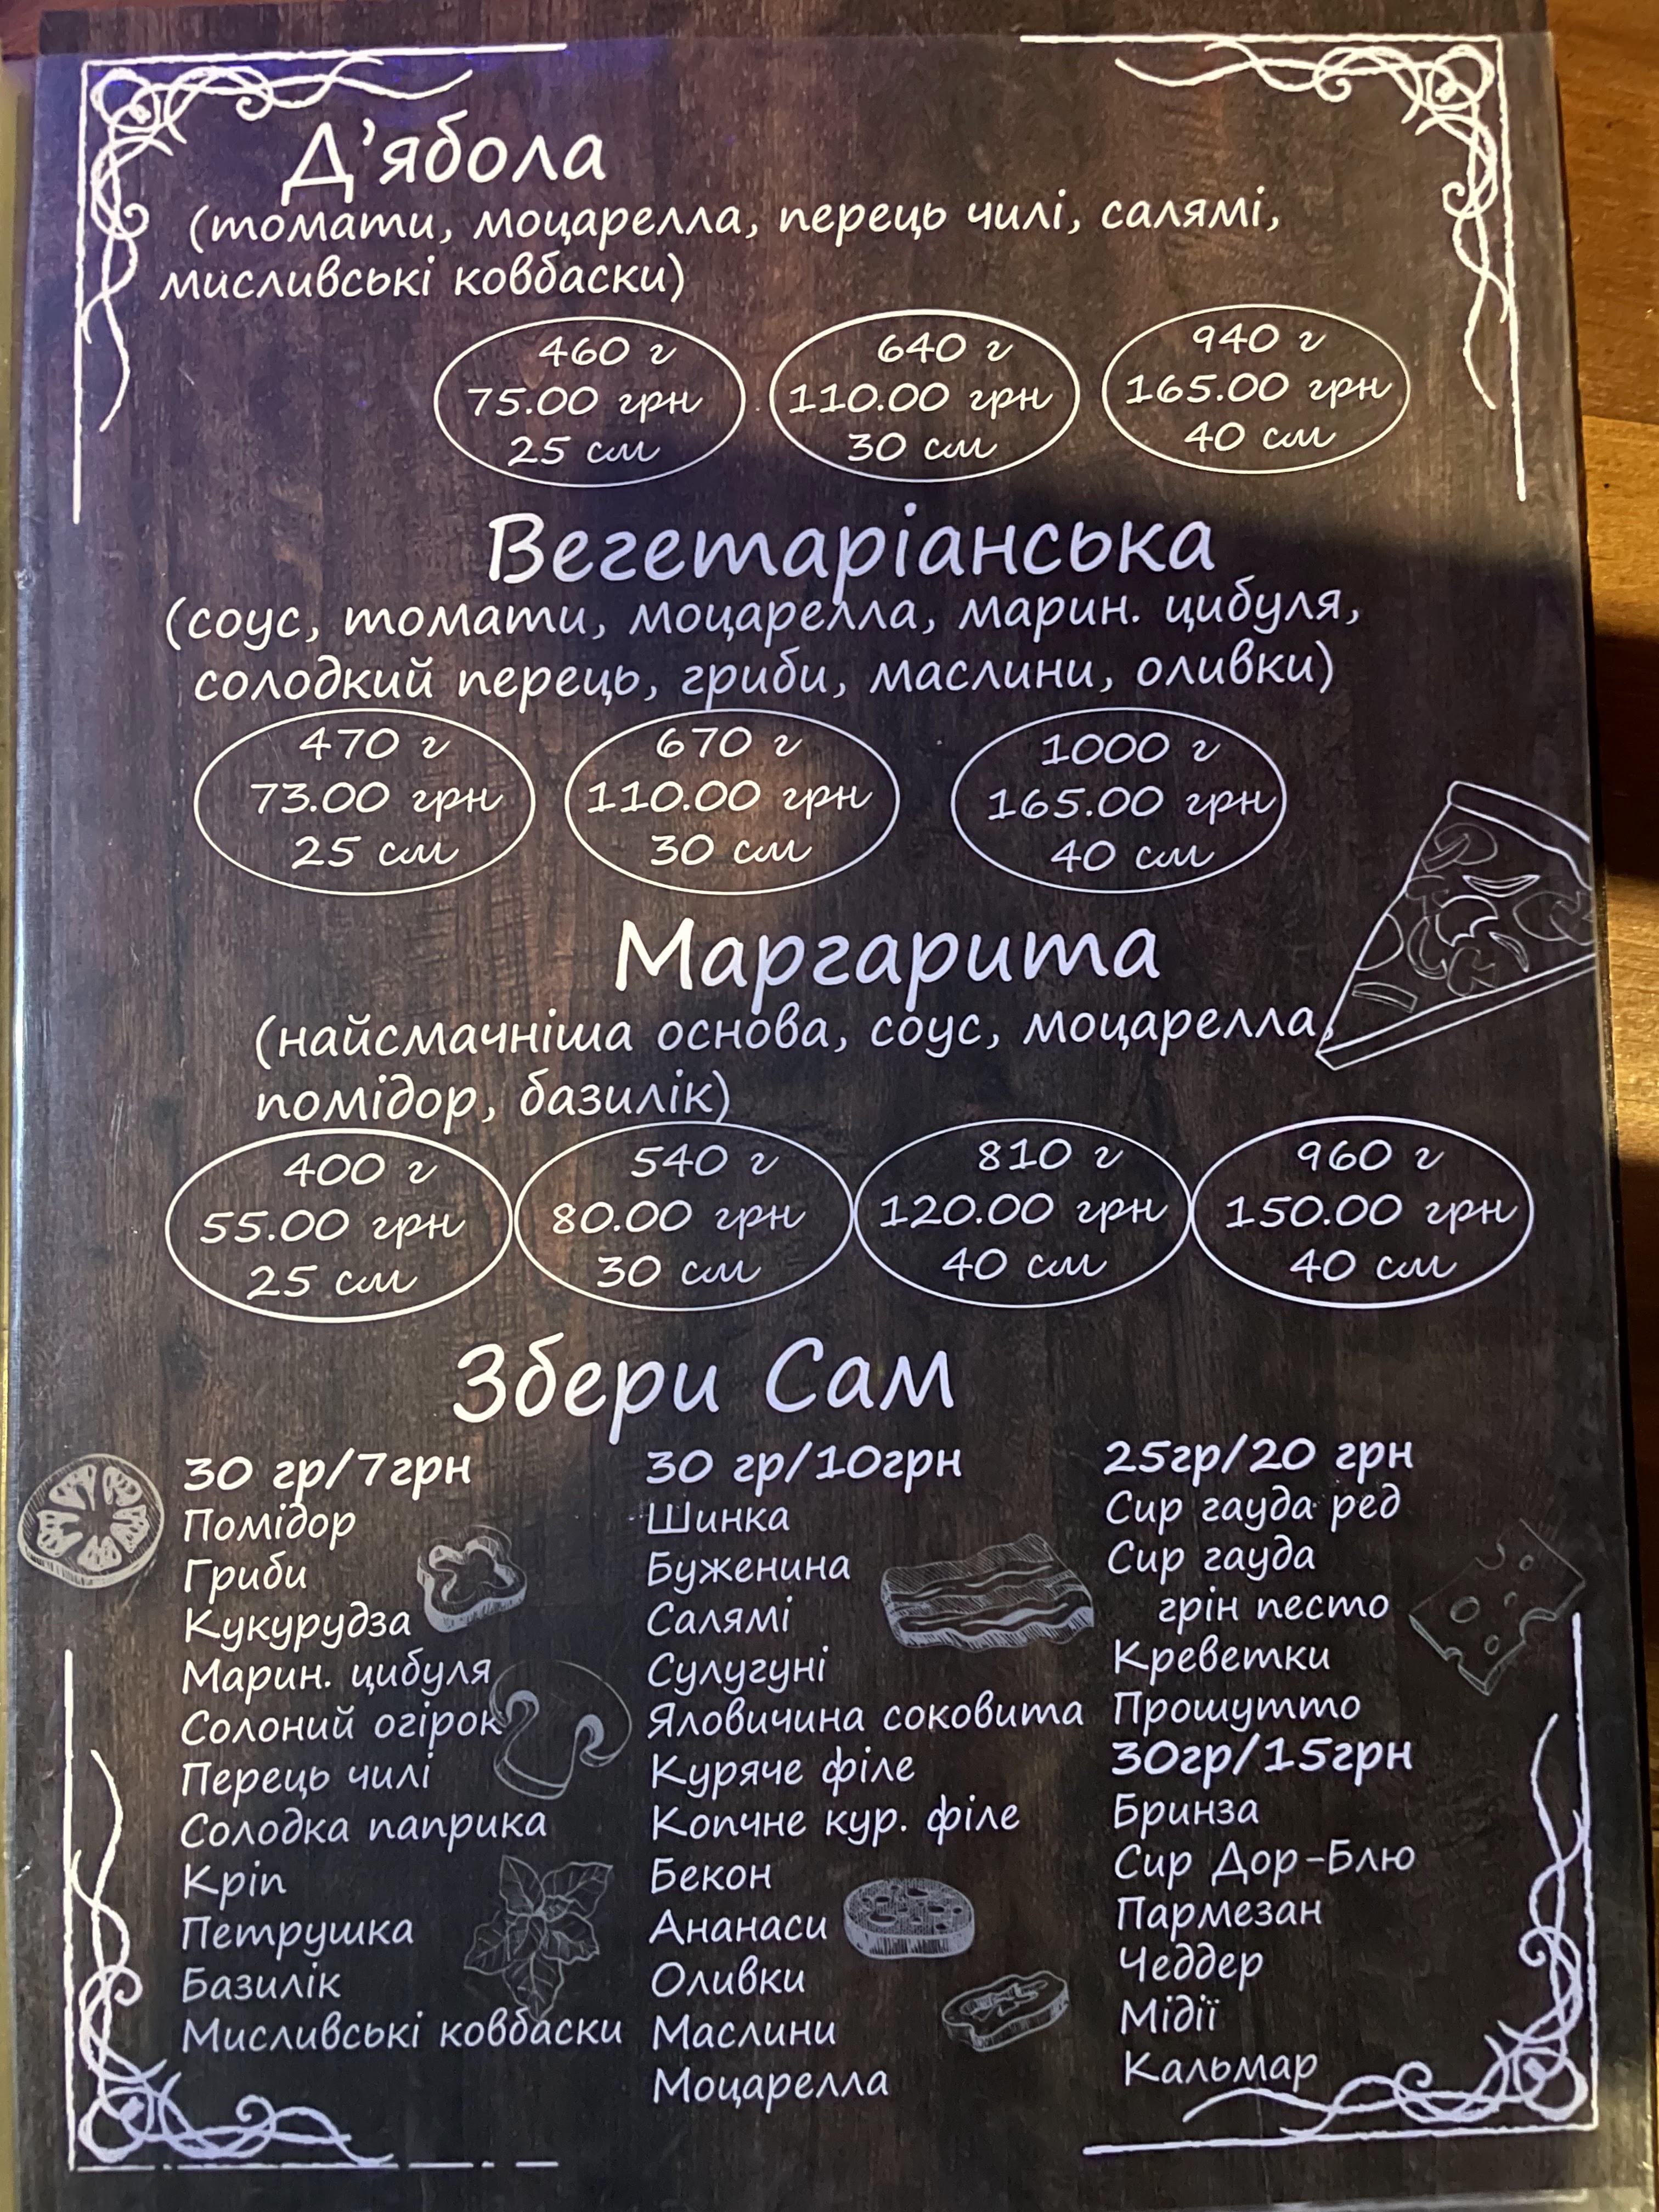 Д'ябола
(томати, моцарелла, перець чилі, салямі,
мисливські ковбаски)
460 г
75.00 грн
25 см
640 г
110.00 грн
30 см
940 г
165.00 грн
40 см
Вегетаріанська
(соус, томати, моцарелла, марин. цибуля,
солодкий перець, гриби, маслини, оливки)
470 г
73.00 грн
25 см
670 г
110.00 грн
30 см
1000 г
165.00 грн
40 см
Маргарита
(найсмачніша основа, соус, моцарелла,
помідор, базилік)
400 г
55.00 грн
25 см
540 г
80.00 грн
30 см
810 г
120.00 грн
40 см
960 г
150.00 грн
40 см
Збери Сам
30 гр/7грн
Помідор
Гриби
Кукурудза
Марин. цибуля
Солоний огірок
Перець чилі
Солодка паприка
Кріп
Петрушка
Базилік
Мисливські ковбаски
30 гр/10грн
Шинка
Буженина
Салямі
Сулугуні
Яловичина соковита
Куряче філе
Копчне кур. філе
Бекон
Ананаси
Оливки
Маслини
Моцарелла
25гр/20 грн
Сир гауда ред
Сир гауда
грін песто
Креветки
Прошутто
30гр/15грн
Бринза
Сир Дор-Блю
Пармезан
Чеддер
Мідії
Кальмар